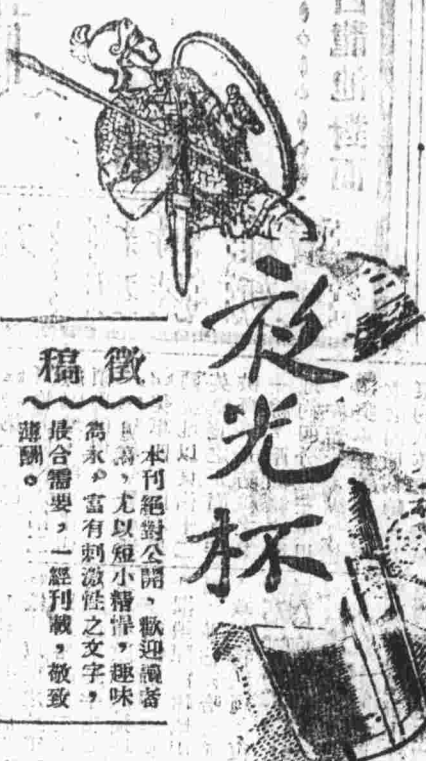 夜光杯
徵稿
本刊絕對公開，歡迎讀者
稿，尤以短小精悍，趣味
雋永，富有刺激性之文字，
最合需要，一經刊載，敬致
薄酬。